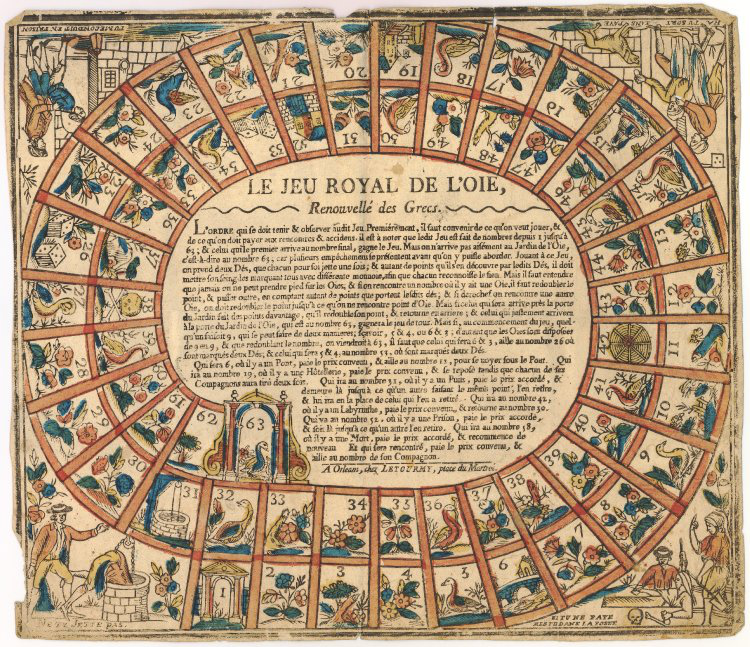 LE JEU ROYAL DE L'OIE,
Renouvellé des Grecs.
L'ORDRE qui se doit tenir & observer audit Jeu. Premiérement, il faut convenir de ce qu'on veut jouer, &
de ce qu'on doit payer aux rencontres & accidens. il est à noter que ledit Jeu est fait de nombres depuis 1 jusqu'à
63; & celui qui le premier arrive au nombre final, gagne le Jeu. Mais on n'arrive pas aisément au Jardin de l'Oie,
c'est-à-dire au nombre 63, car plusieurs empêchemens se présentent avant qu'on y puisse aborder. Jouant à ce Jeu,
on prend deux Dés, que chacun pour soi jette une fois; & autant de points qu'il s'en découvre par lesdits Dés, il doit
mettre son seing, les marquant tous avec différente monnoie, afin que chacun reconnoisse le sien. Mais il faut entendre
que jamais on ne peut prendre pied sur les Oies; & si on rencontre un nombre où il y ait une Oie, il faut redoubler le
point, & passer outre, en comptant autant de points que portent lesdits dés; & si derechef on rencontre une autre
Oie, on doit redoubler le point jusqu'à ce qu'on ne rencontre point d'Oie. Mais si celui qui sera arrivé près la porte
du Jardin fait des points davantage, qu'il redouble son point, & retourne en arriere; & celui qui justement arrivera
à la porte du Jardin de l'Oie, qui est au nombre 63, gagnera le jeu de tour. Mais si, au commencement du jeu, quel-
qu'un faisoit 9, qui se peut faire de deux manieres, savoir, 5 & 4, ou 6 & 3; d'autant que les Oies sont disposées
de 9 en 9, & que redoublant le nombre, on viendroit à 63, il faut que celui qui fera 6 & 3, aille au nombre 26 où
sont marqués deux Dés; & celui qui fera 5 & 4, au nombre 53, où sont marqués deux Dés.
Qui fera 6, où il y a un Pont, paie le prix convenu, & aille au nombre 12, pour se noyer sous le Pont. Qui
ira au nombre 19, où il y a une Hôtellerie, paie le prix convenu, & se repose tandis que chacun de ses
Compagnons aura tiré deux fois. Qui ira au nombre 31, où il y a un Puits, paie le prix accordé, &
demeure là jusqu'à ce qu'un autre faisant le même point, l'en retire,
& lui ira en la place de celui qui l'en a retiré. Qui ira au nombre 42,
où il y a un Labyrinthe, paie le prix convenu, & retourne au nombre 30.
Qui va au nombre 52, où il y a une Prison, paie le prix accordé,
& soit là jusqu'à ce qu'un autre l'en retire. Qui ira au nombre 58,
où il y a une Mort, paie le prix accordé, & recommence de
nouveau Et qui sera rencontré, paie le prix convenu, &
aille au nombre de son Compagnon.
A Orléans, chez LETOURMY, place du Martroi.
62
63
1
2
3
4
5
6
7
8
9
11
16
17
18
19
20
21
22
23
30
31
32
33
34
35
36
37
38
39
40
41
42
43
44
47
48
49
50
51